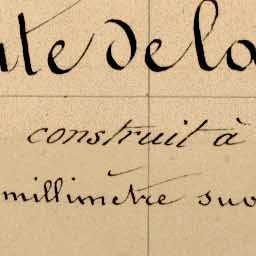 de la
construit à
millimètre